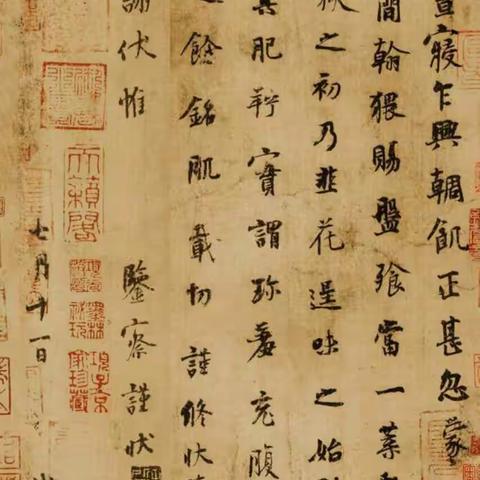 晝寢乍興輖飢正甚忽蒙
簡翰猥賜盤飧當一葉
秋之初乃韭花逞味之始
其肥羜實謂珍羞充腹
餘銘肌載切謹修狀
謝伏惟 鑒察謹狀
天籟閣
項子京家珍藏
七月十一日